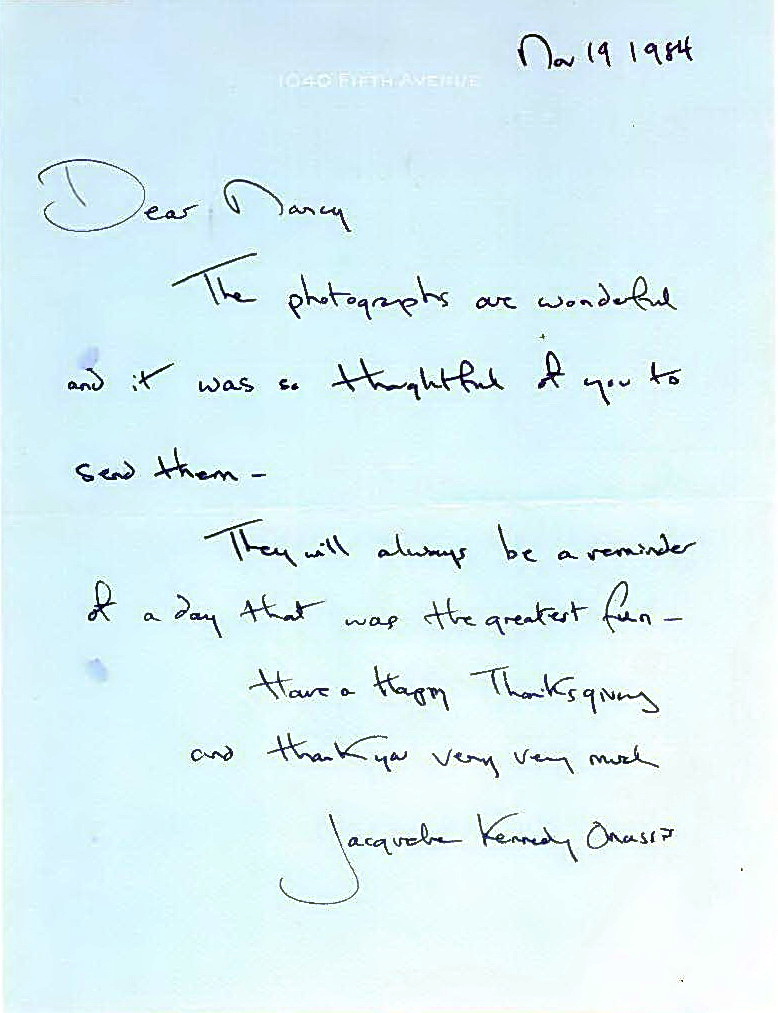 Nov 19 1984
1040 FIFTH AVENUE
Dear Nancy
The photographs are wonderful
and it was so thoughtful of you to
send them –
They will always be a reminder
of a day that was the greatest fun –
Have a Happy Thanksgiving
and thank you very very much
Jacqueline Kennedy Onassis